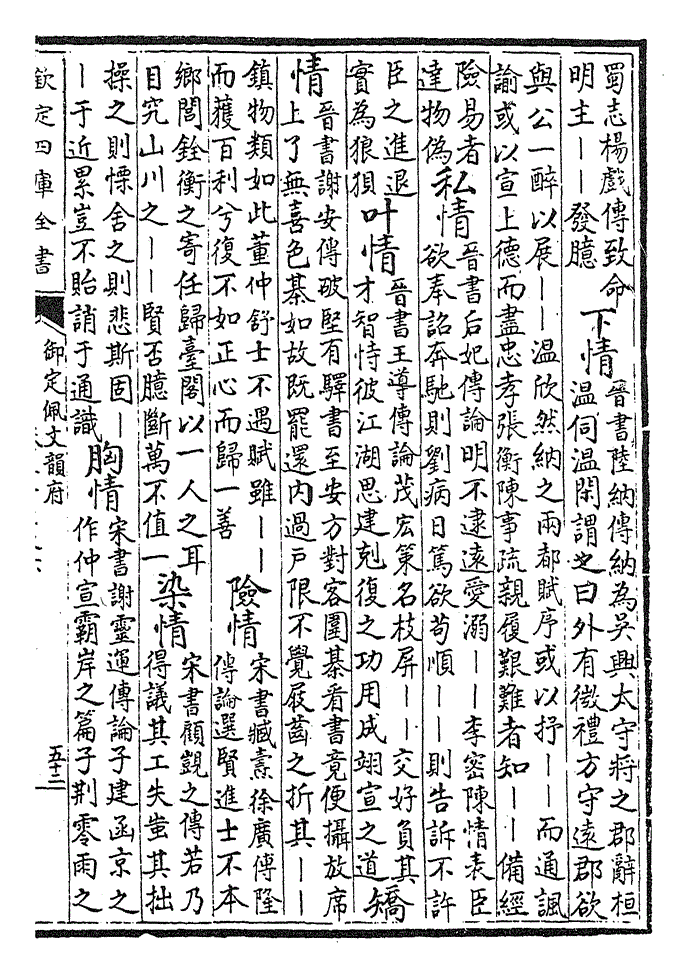 蜀志楊戲傳致命
明主丨丨發臆
下情
晉書陸納傳納為吳興太守將之郡辭桓
温伺温閑謂之曰外有微禮方守遠郡欲
與公一醉以展丨丨温欣然納之兩都賦序或以抒丨丨而通諷
諭或以宣上德而盡忠孝張衡陳事疏親履艱難者知丨丨備經
險易者
達物偽
私情
晉書后妃傳論明不逮遠愛溺丨丨李密陳情表臣
欲奉詔奔馳則劉病日篤欲苟順丨丨則告訴不許
臣之進退
實為狼狽
叶情
晉書王導傳論茂宏策名枝屏丨丨交好負其
才智恃彼江湖思建剋復之功用成翊宣之道
矯
情
晉書謝安傳破堅有驛書至安方對客圍棊看書竟便攝放席
上了無喜色棊如故既罷還内過戶限不覺屐齒之折其丨丨
鎮物類如此董仲舒士不遇賦雖丨丨
而獲百利兮復不如正心而歸一善
險情
宋書臧燾徐廣傅隆
傳論選賢進士不本
鄉閭銓衡之寄任歸臺閣以一人之耳
目究山川之丨丨賢否臆斷萬不值一
染情
宋書顧覬之傳若乃
得議其工失蚩其拙
操之則慄舍之則悲斯固丨
丨于近累豈不貽誚于通識
胸情
宋書謝靈運傳論子建函京之
作仲宣霸岸之篇子荆零雨之
欽定四庫全書
御定佩文韻府
五十二